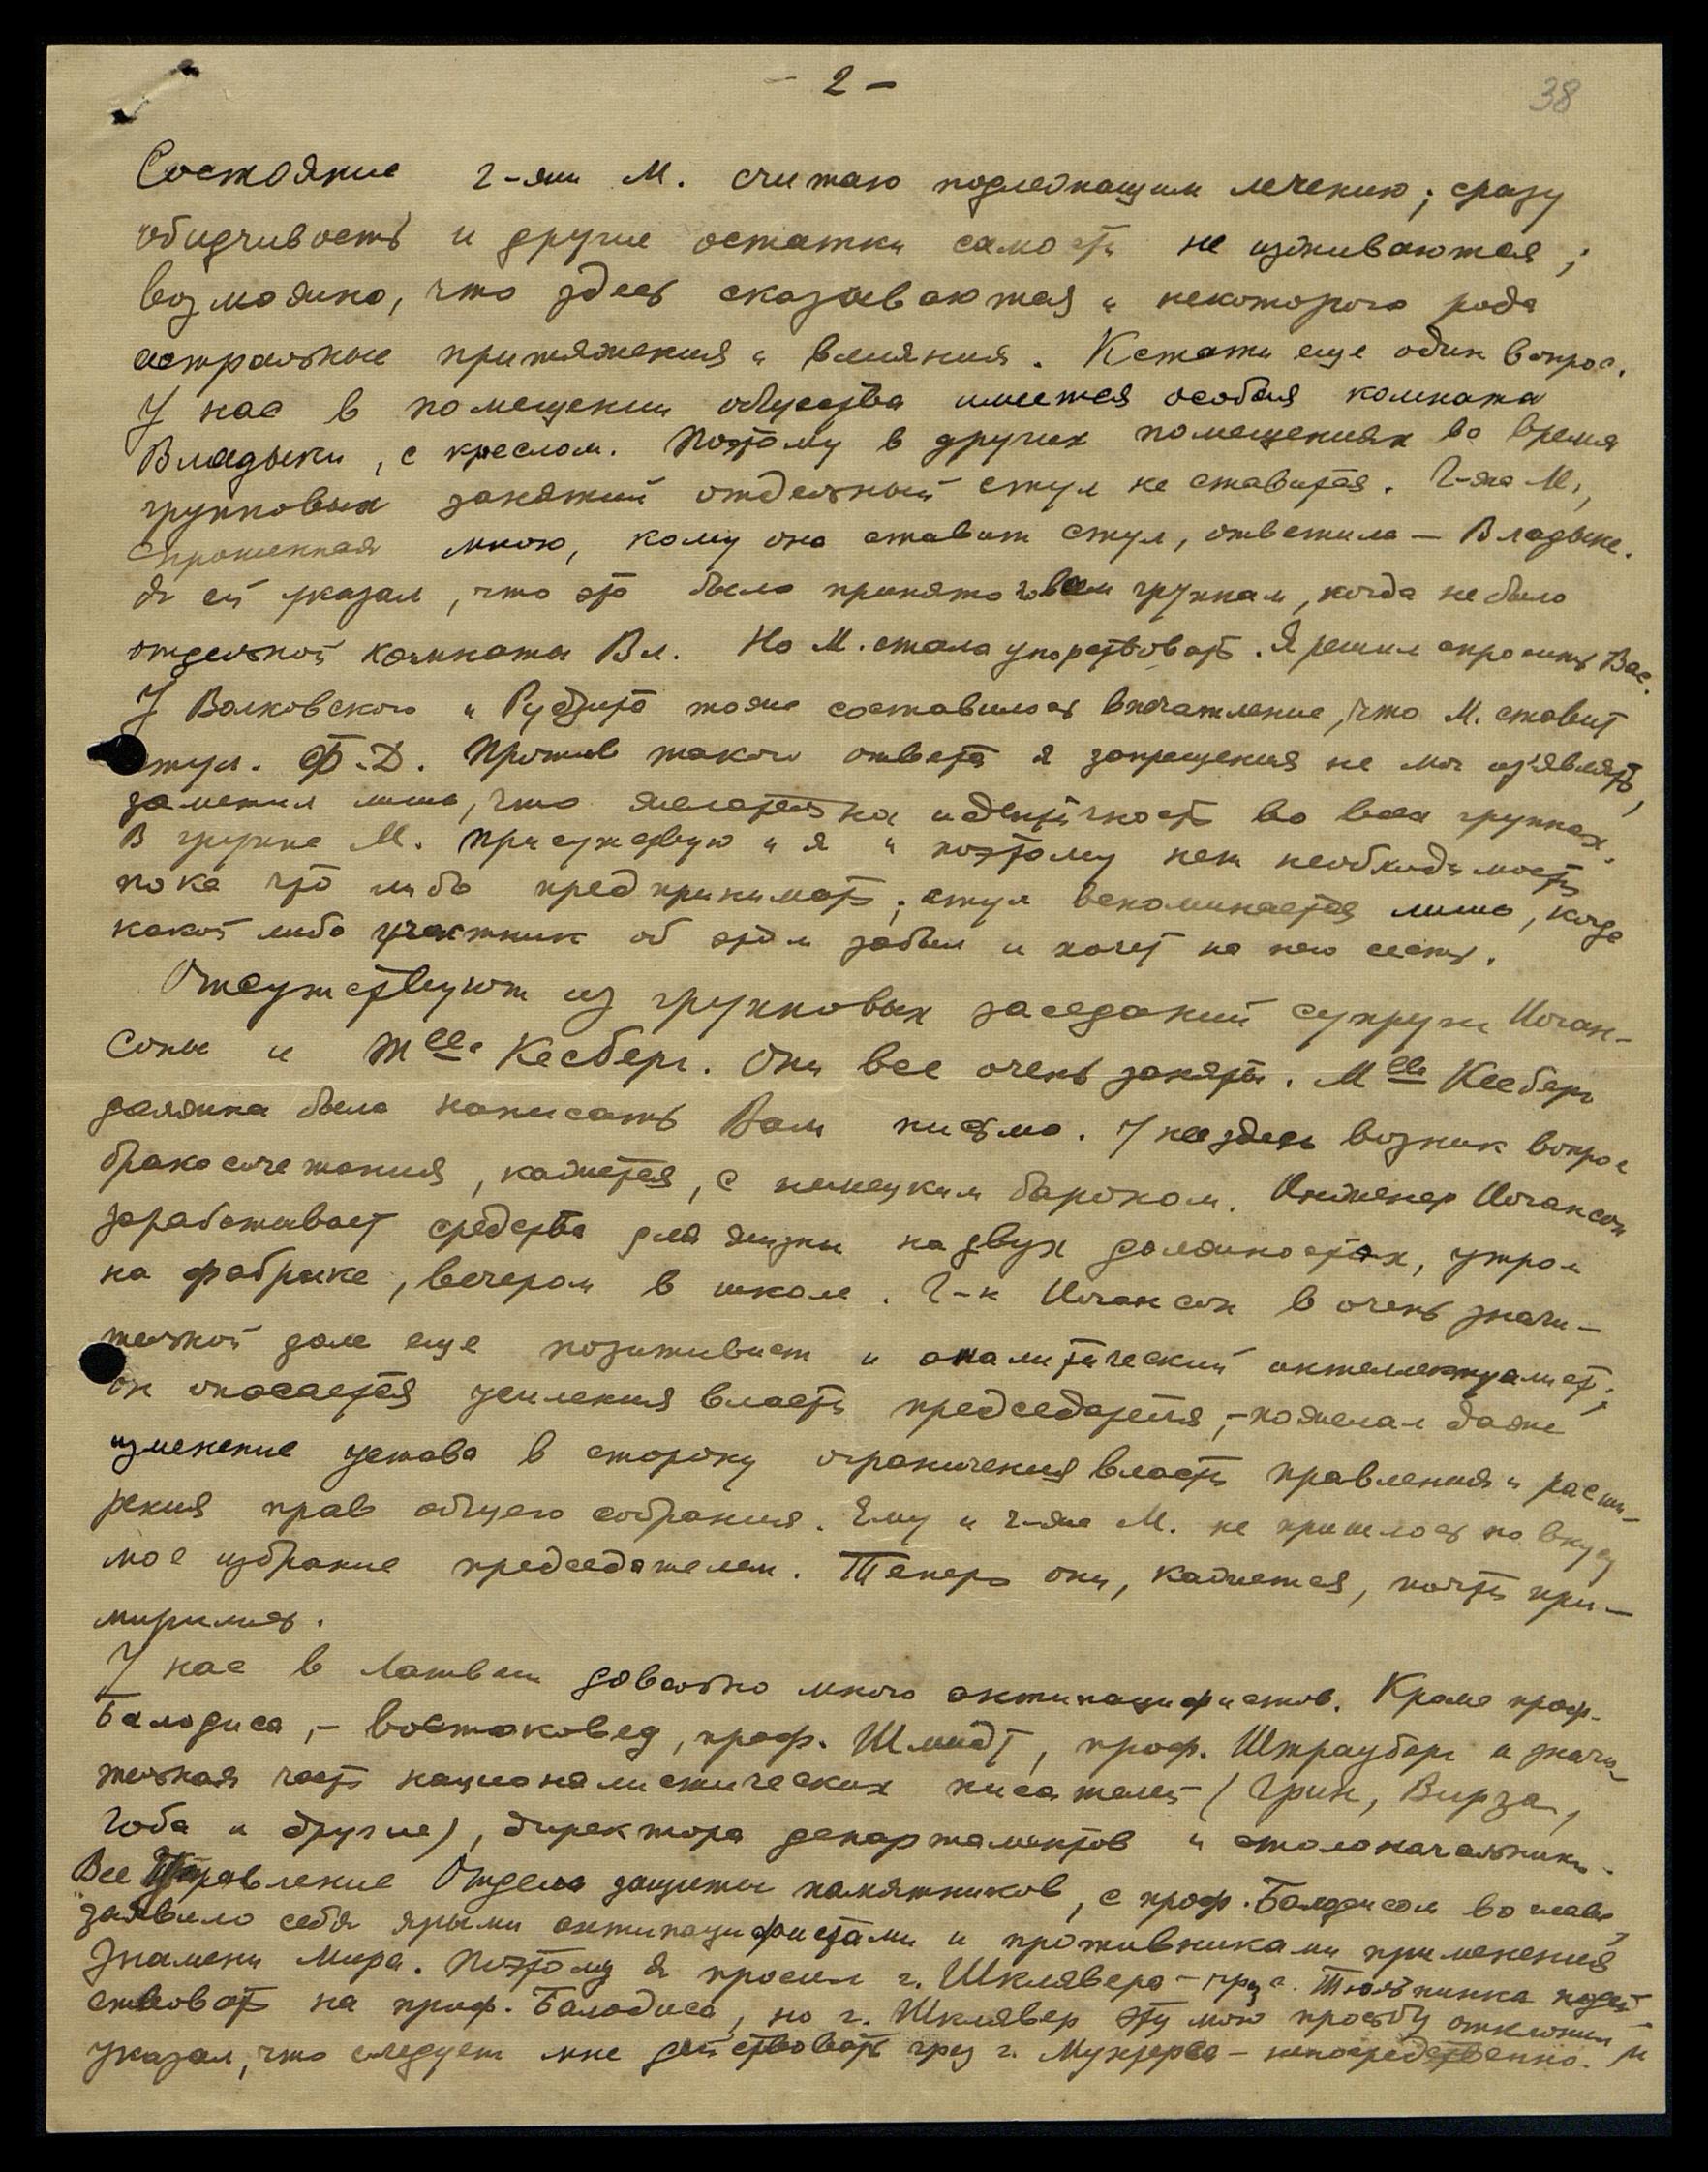 - 2 -
38
Состояние г-жи М. считаю подлежащим лечению; сразу
обидчивость и другие остатки самости не изживаются;
возможно, что здесь сказываются и некоторого рода
астральные притяжения и влияния. Кстати еще один вопрос.
У нас в помещении общества имеется особая комната
Владыки, с креслом. Поэтому в других помещениях во время
групповых занятий отдельный стул не ставится. Г-жа М.,
спрошенная мною, кому она ставит стул, ответила — Владыке.
Я ей указал, что это было принято всем группам, когда не было
отдельной комнаты Вл. Но М. стала упорствовать. Я решил спросить Вас.
У Валковского и Рудзита тоже составилось впечатление, что М. ставит
стул. Ф.Д. Против такого ответа я запрещения не мог изъявлять,
заметил лишь, что желательна идентичность во всех группах.
В группе М. присутствую и я и поэтому нет необходимости
пока что либо предпринимать; стул вспоминается лишь, когда
какой либо участник об этом забыл и хочет на него сесть.
Отсутствуют из групповых заседаний супруги Иоган-
соны и Mlle Кесберг. Они все очень заняты. Mlle Кесберг
должна была написать Вам письмо. У нее здесь возник вопрос
бракосочетания, кажется, с немецким бароном. Инженер Иогансон
зарабатывает средства для жизни на двух должностях, утром
на фабрике, вечером в школе. Г-н Иогансон в очень значи-
тельной доле еще позитивист и аналитический интеллектуалист;
он опасается усиления власти председателя, - пожелал даже
изменение устава в сторону ограничения власти правления и расши-
рения прав общего собрания. Ему и г-же М. не пришлось по вкусу
мое избрание председателем. Теперь они, кажется, почти при-
мирились.
У нас в Латвии довольно много антипацифистов. Кроме проф.
Балодиса, - востоковед, проф. Шмидт, проф. Штрауберг и значи-
тельная часть националистических писателей (Грин, Вирза,
Гоба и другие), директора департаментов и столоначальники.
Все Управление Отдела защиты памятников, с проф. Балодисом во главе,
заявило себя ярыми антипацифистами и противниками применения
Знамени Мира. Поэтому я просил г. Шклявера - чрез г. Тюльпинка подей-
ствовать на проф. Балодиса, но г. Шклявер эту мою просьбу отклонил и
указал, что следует мне действовать чрез г. - непосредственно.